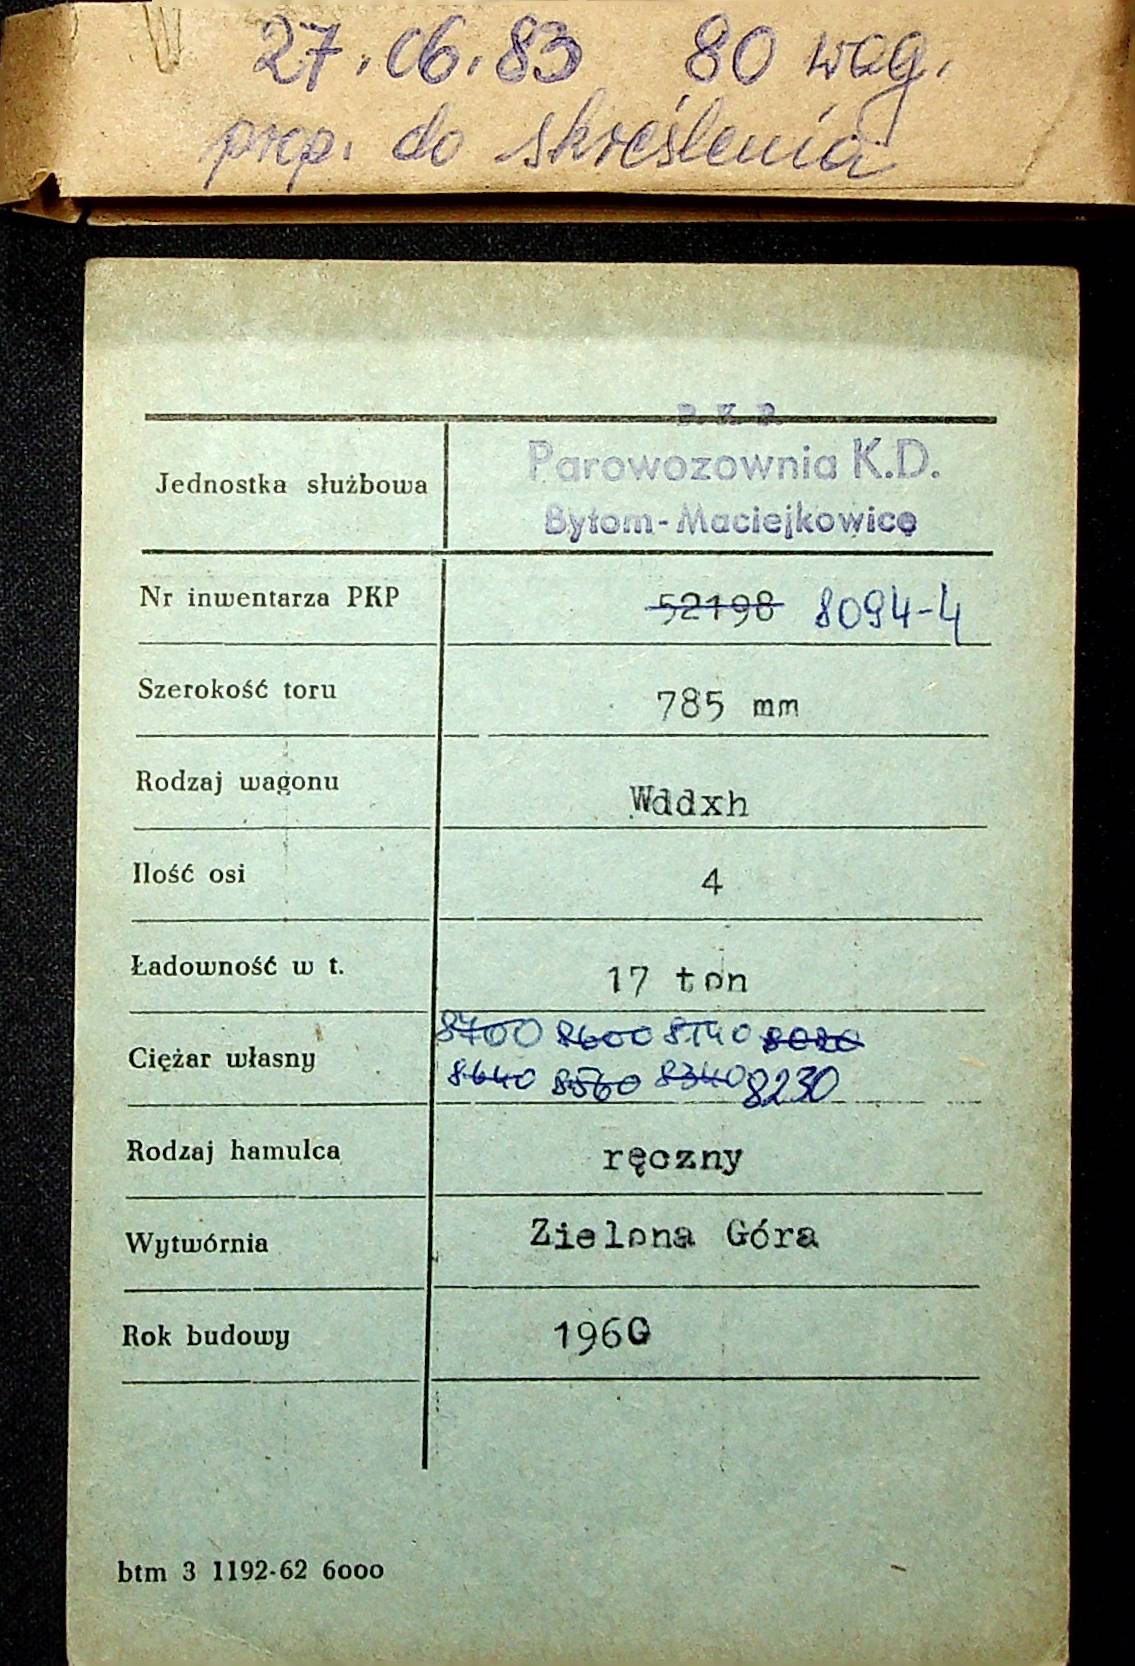 27.06.83 80 wag.
prop. do skreślenia
P. K. P.
Parowozownia K.D.
Bytom-Maciejkowice
Jednostka służbowa
Nr inwentarza PKP 52198 8094-4
Szerokość toru 785 mm
Rodzaj wagonu Wddxh
Ilość osi 4
Ładowność w t. 17 ton
8700 8600 8140 8020
Ciężar własny
8640 8560 8340 8230
Rodzaj hamulca ręczny
Wytwórnia Zielona Góra
Rok budowy 1960
btm 3 1192-62 6000